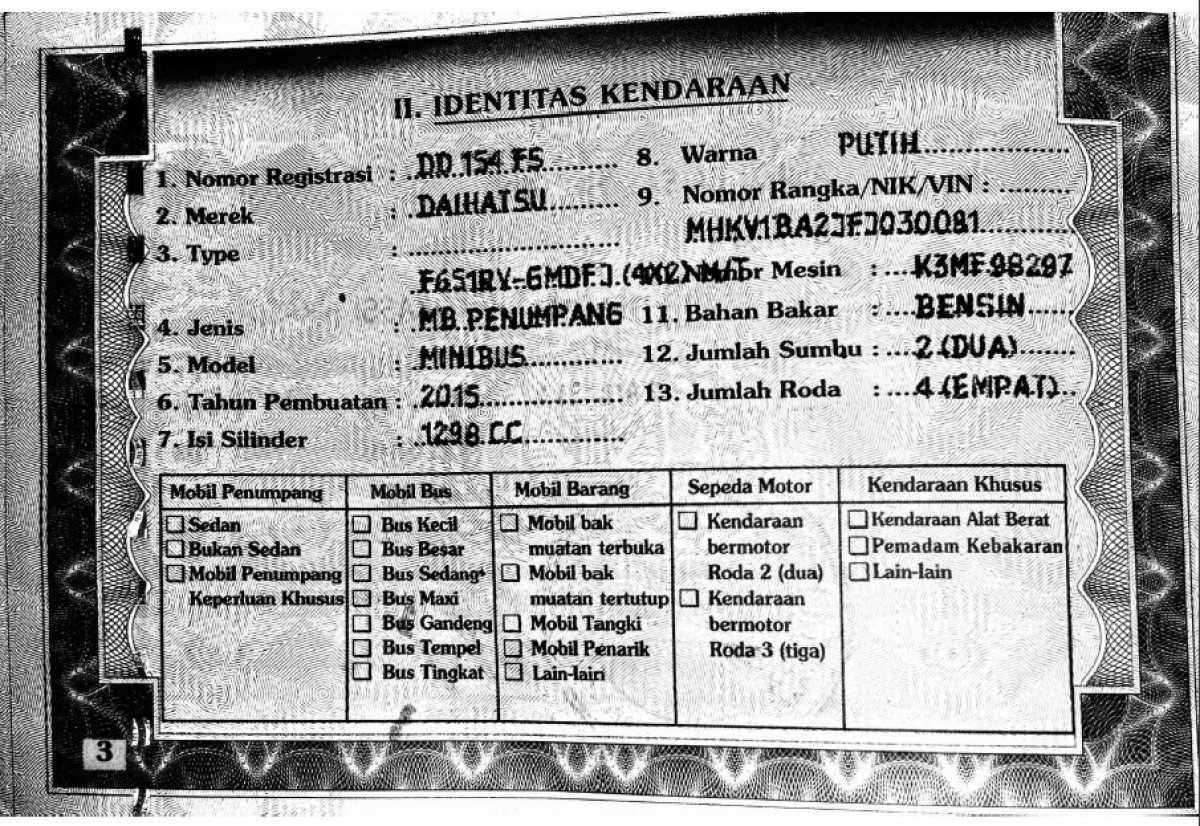 II. IDENTITAS KENDARAAN
1. Nomor Registrasi : DD 154 FS
2. Merek : DAIHATSU
3. Type :
F651RV-GMDFJ (4X2) M/T
4. Jenis : MB. PENUMPANG
5. Model : MINIBUS
6. Tahun Pembuatan : 2015
7. Isi Silinder : 1298 CC
8. Warna PUTIH
9. Nomor Rangka/NIK/VIN :
MHKV1BA2JFJ030081
Nomor Mesin : K3MF98297
11. Bahan Bakar : BENSIN
12. Jumlah Sumbu : 2 (DUA)
13. Jumlah Roda : 4 (EMPAT)
Mobil Penumpang
Sedan
Bukan Sedan
Mobil Penumpang
Keperluan Khusus
Mobil Bus
Bus Kecil
Bus Besar
Bus Sedang
Bus Maxi
Bus Gandeng
Bus Tempel
Bus Tingkat
Mobil Barang
Mobil bak
muatan terbuka
Mobil bak
muatan tertutup
Mobil Tangki
Mobil Penarik
Lain-lain
Sepeda Motor
Kendaraan
bermotor
Roda 2 (dua)
Kendaraan
bermotor
Roda 3 (tiga)
Kendaraan Khusus
Kendaraan Alat Berat
Pemadam Kebakaran
Lain-lain
3